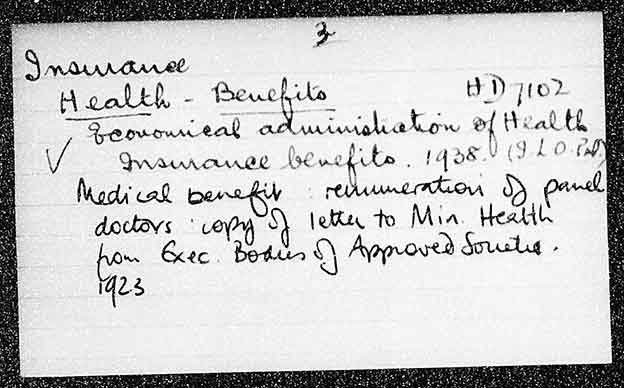 3
Insurance
Health - Benefits HD 7102
Economical administration of Health
✓ Insurance benefits. 1938. (I L O. Pub.)
Medical benefit : remuneration of panel
doctors : copy of letter to Min. Health
from Exec. Bodies of Approved Societies.
1923